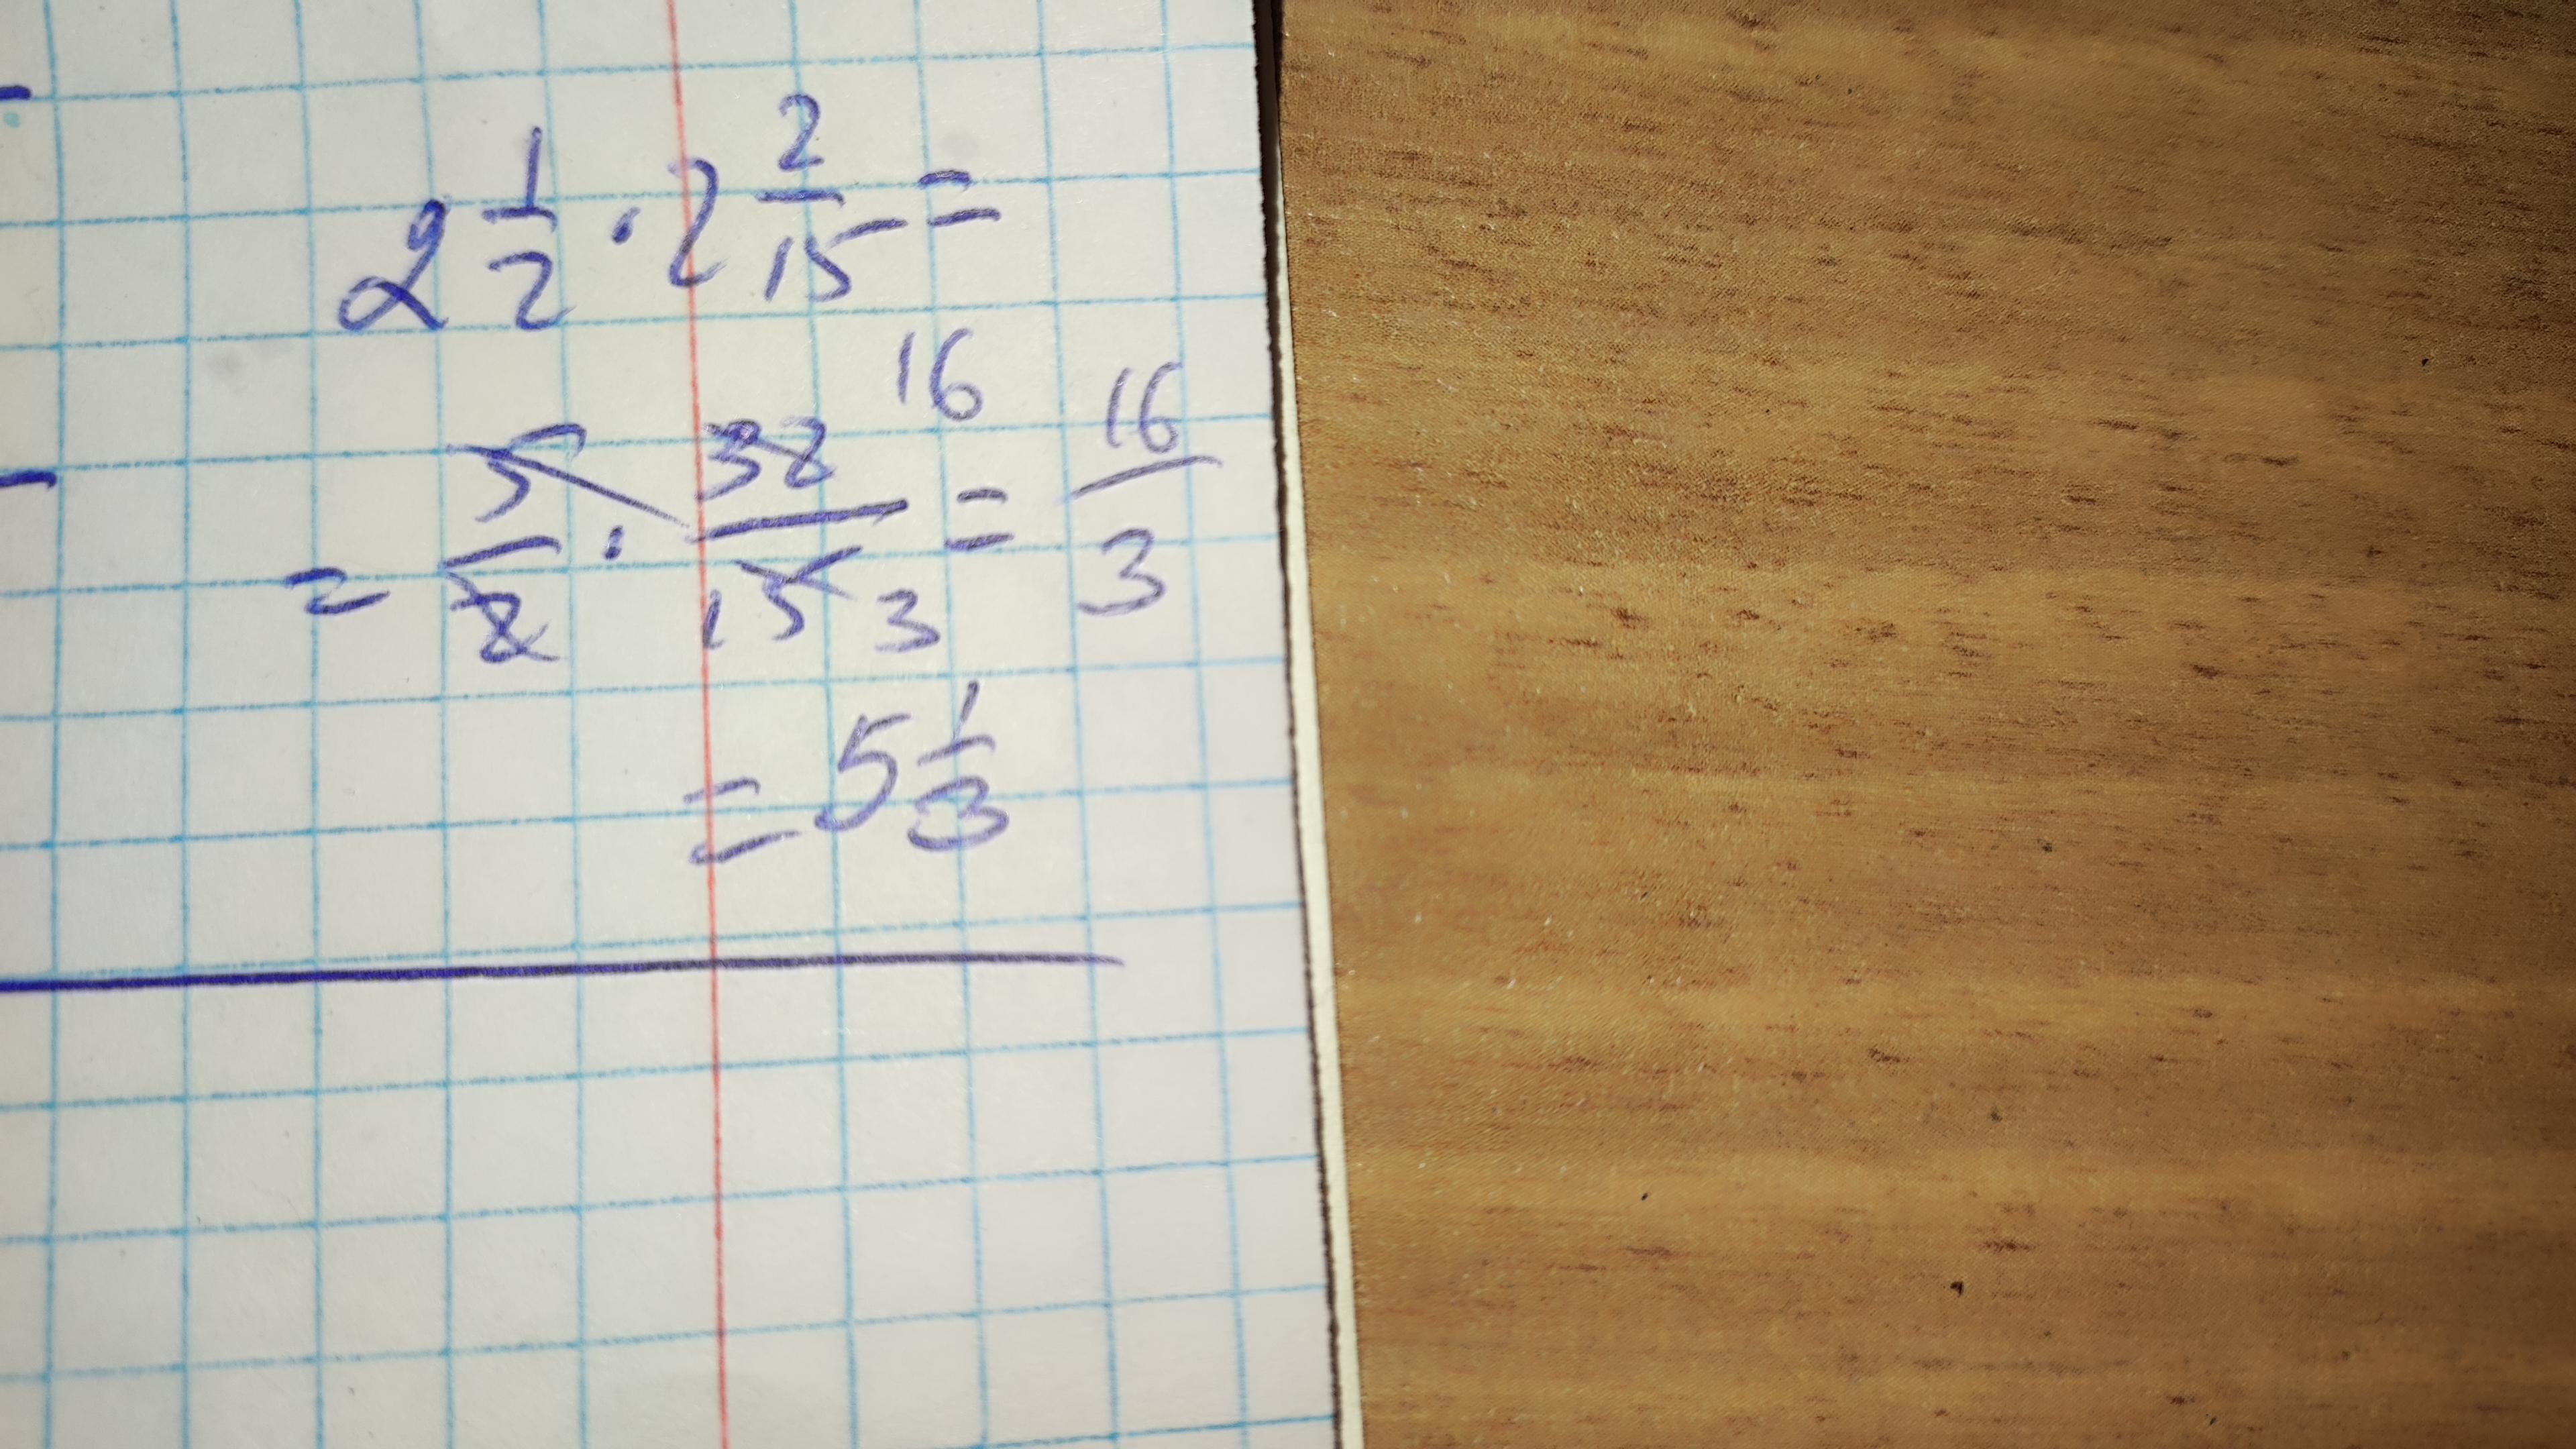 2 1/2 · 2 2/15 =
= 5/2 · 32/15 16 3 = 16/3
= 5 1/3